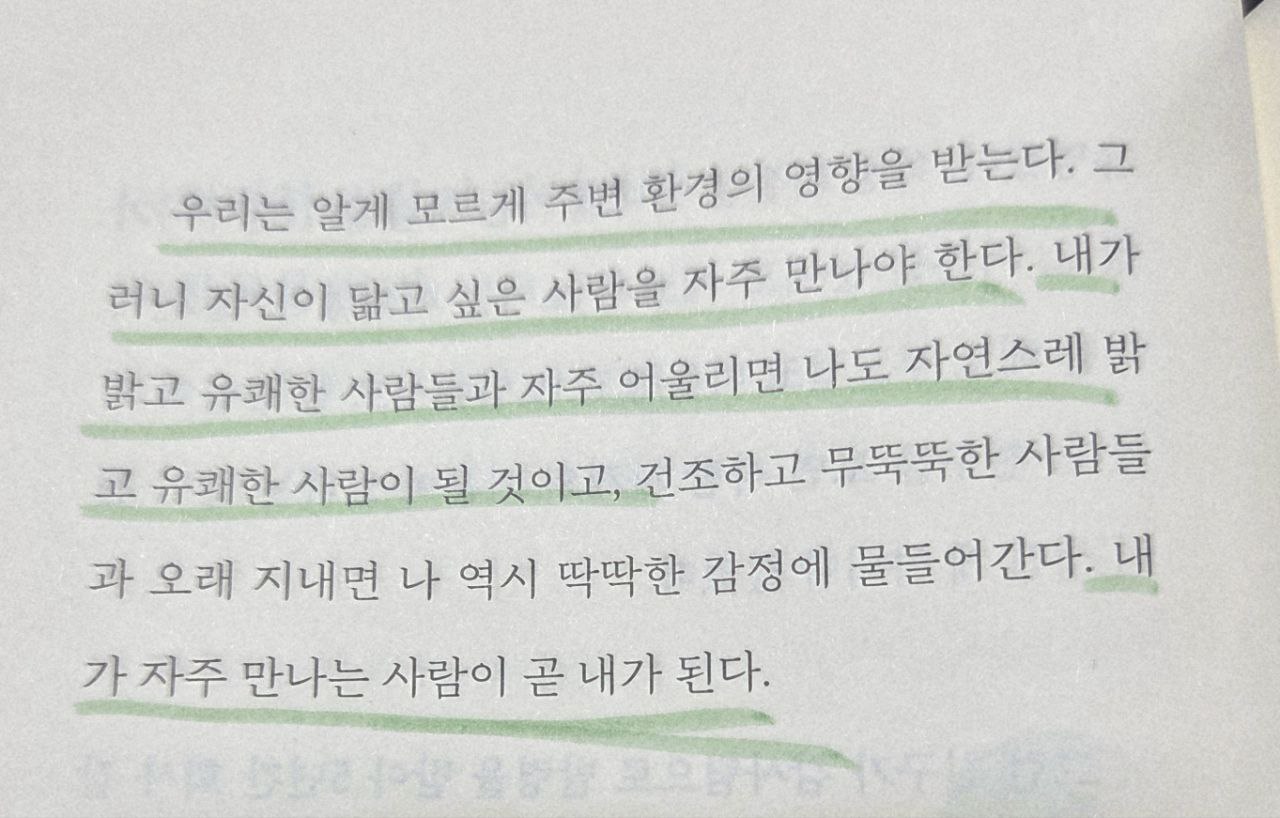 우리는 알게 모르게 주변 환경의 영향을 받는다. 그
러니 자신이 닮고 싶은 사람을 자주 만나야 한다. 내가
밝고 유쾌한 사람들과 자주 어울리면 나도 자연스레 밝
고 유쾌한 사람이 될 것이고, 건조하고 무뚝뚝한 사람들
과 오래 지내면 나 역시 딱딱한 감정에 물들어간다. 내
가 자주 만나는 사람이 곧 내가 된다.